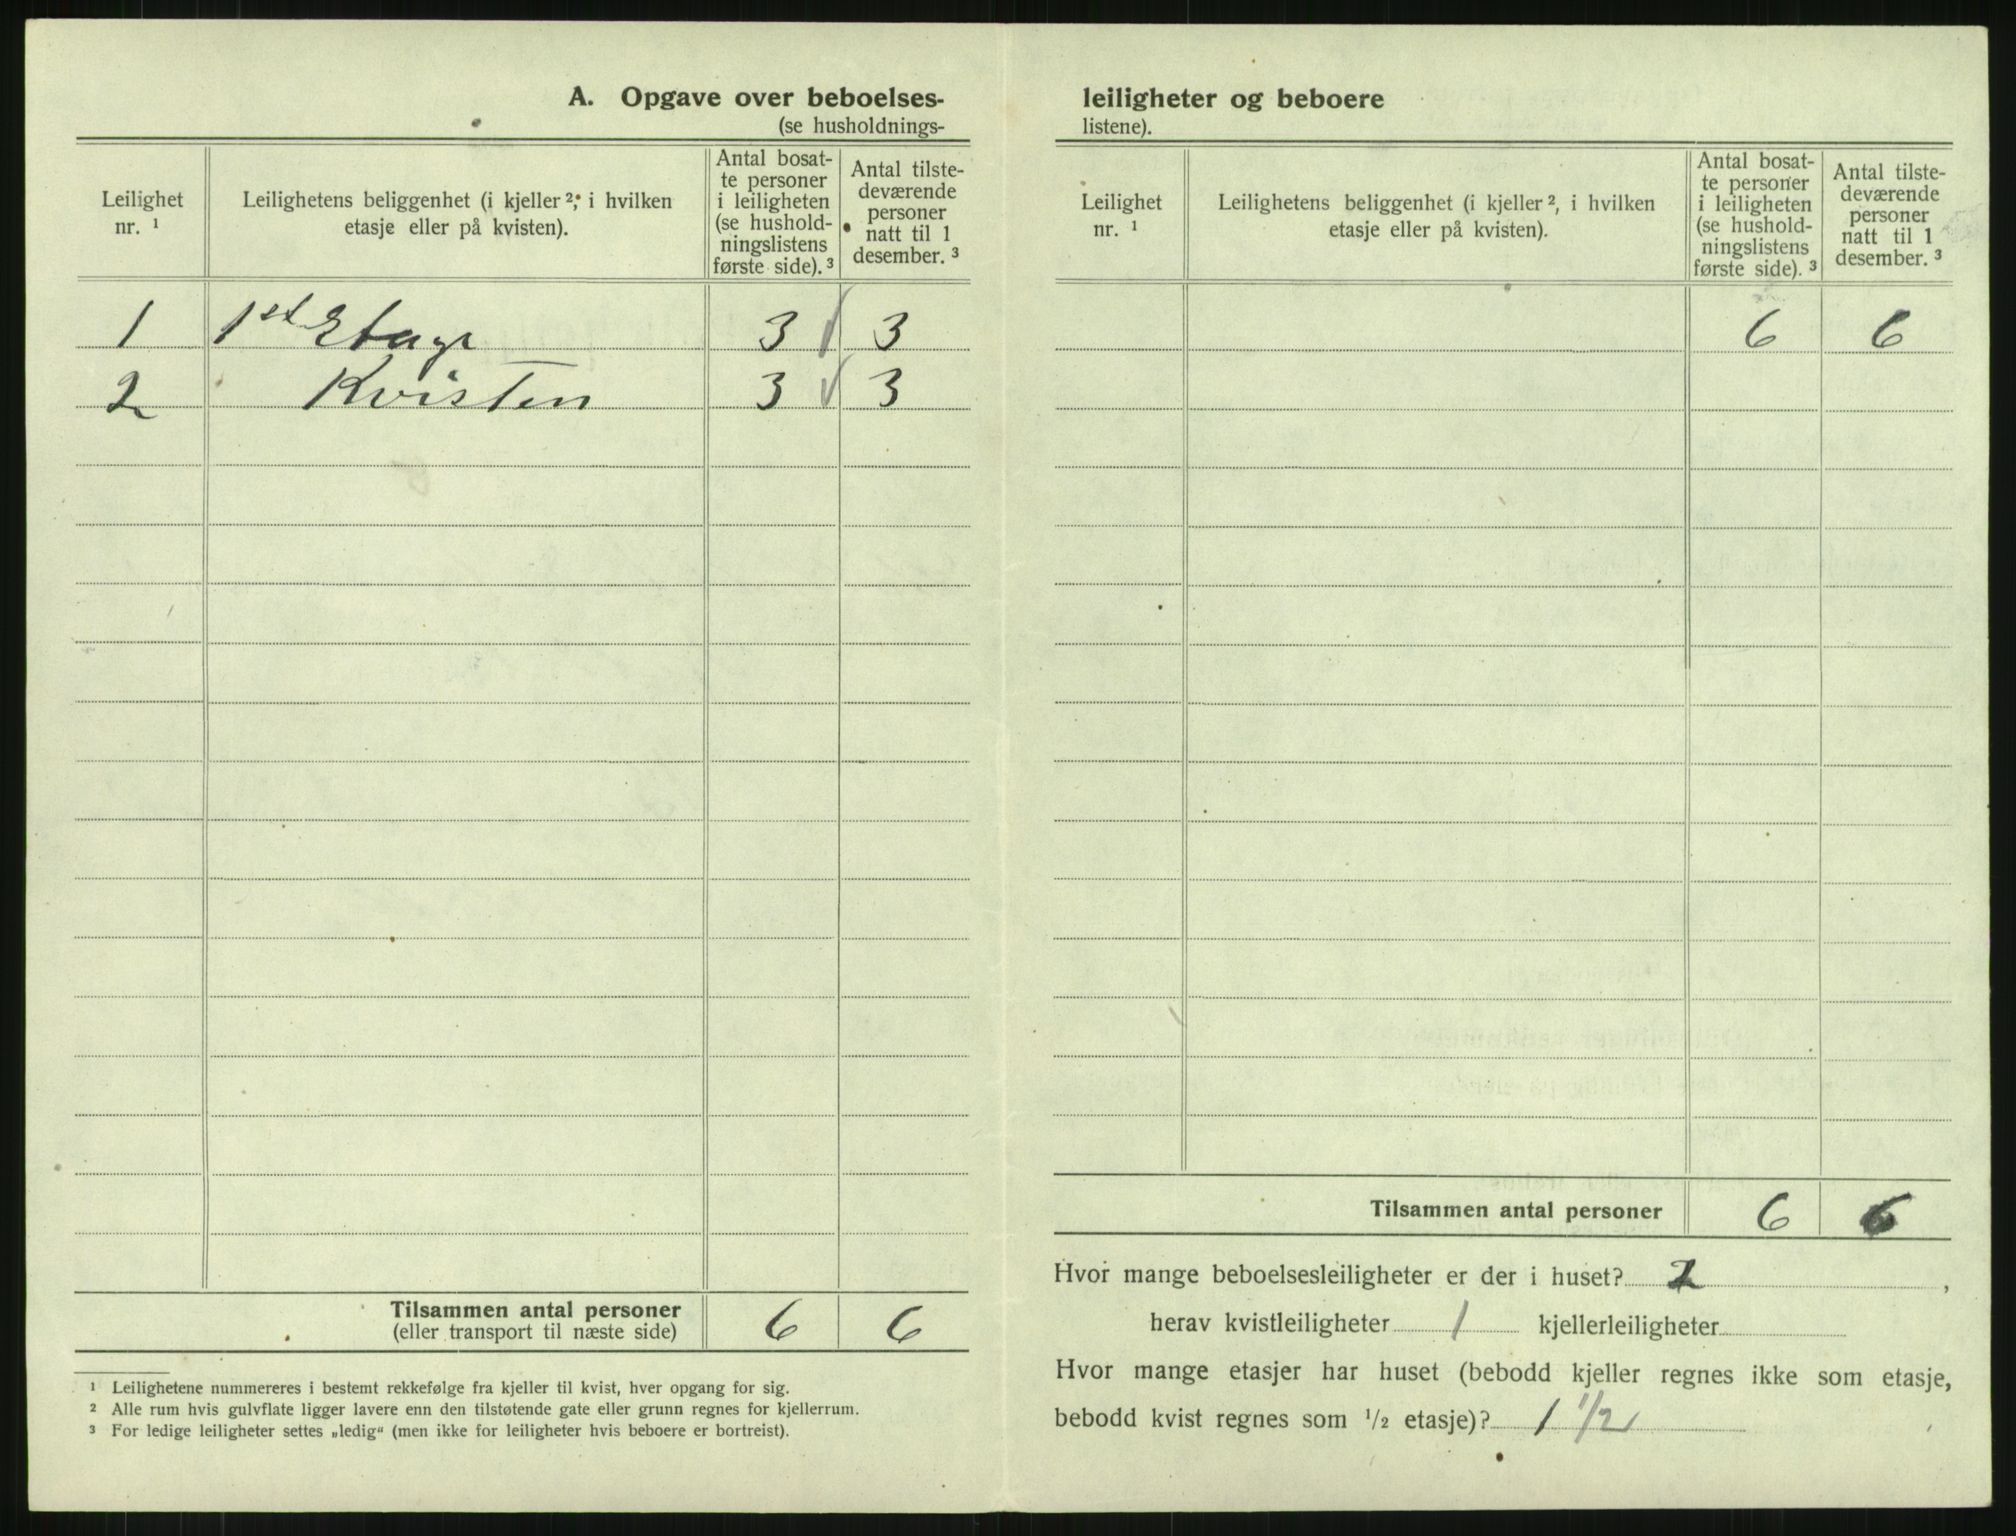 A. Opgave over beboelses-
(se husholdnings-
Leilighet nr. ¹
Leilighetens beliggenhet (i kjeller ², i hvilken etasje eller på kvisten).
Antal bosat-
te personer
i leiligheten
(se hushold-
ningslistens
første side). ³
Antal tilste-
deværende
personer
natt til 1
desember. ³
1 1st Etage 3 3
2 Kvisten 3 3
Tilsammen antal personer 6 6
(eller transport til næste side)
¹ Leilighetene nummereres i bestemt rekkefølge fra kjeller til kvist, hver opgang for sig.
² Alle rum hvis gulvflate ligger lavere enn den tilstøtende gate eller grunn regnes for kjellerrum.
³ For ledige leiligheter settes „ledig“ (men ikke for leiligheter hvis beboere er bortreist).
leiligheter og beboere
listene).
Leilighet nr. ¹
Leilighetens beliggenhet (i kjeller ², i hvilken etasje eller på kvisten).
Antal bosat-
te personer
i leiligheten
(se hushold-
ningslistens
første side). ³
Antal tilste-
deværende
personer
natt til 1
desember. ³
6 6
Tilsammen antal personer 6 6
Hvor mange beboelsesleiligheter er der i huset? 2 ,
herav kvistleiligheter 1 kjellerleiligheter
Hvor mange etasjer har huset (bebodd kjeller regnes ikke som etasje,
bebodd kvist regnes som ½ etasje)? 1 1/2